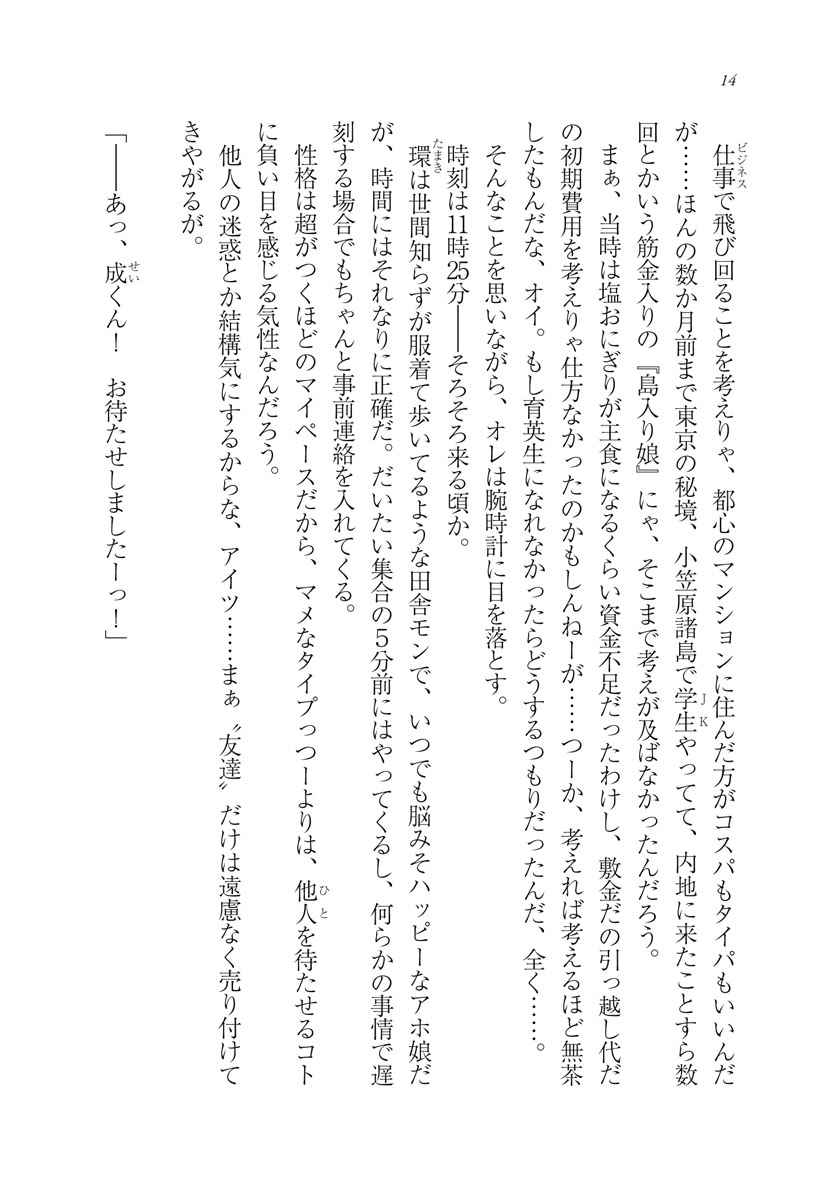 14
仕事で飛び回ることを考えりゃ、都心のマンションに住んだ方がコスパもタイパもいいんだ
ビジネス
が……ほんの数か月前まで東京の秘境、小笠原諸島で学生やってて、内地に来たことすら数
ＪＫ
回とかいう筋金入りの『島入り娘』にゃ、そこまで考えが及ばなかったんだろう。
まぁ、当時は塩おにぎりが主食になるくらい資金不足だったわけし、敷金だの引っ越し代だ
の初期費用を考えりゃ仕方なかったのかもしんねーが……つーか、考えれば考えるほど無茶
したもんだな、オイ。もし育英生になれなかったらどうするつもりだったんだ、全く……。
そんなことを思いながら、オレは腕時計に目を落とす。
時刻は11時25分――そろそろ来る頃か。
環は世間知らずが服着て歩いてるような田舎モンで、いつでも脳みそハッピーなアホ娘だ
たまき
が、時間にはそれなりに正確だ。だいたい集合の５分前にはやってくるし、何らかの事情で遅
刻する場合でもちゃんと事前連絡を入れてくる。
性格は超がつくほどのマイペースだから、マメなタイプっつーよりは、他人を待たせるコト
ひと
に負い目を感じる気性なんだろう。
他人の迷惑とか結構気にするからな、アイツ……まぁ〝友達〟だけは遠慮なく売り付けて
きやがるが。
「――あっ、成くん！　お待たせしましたーっ！」
せい